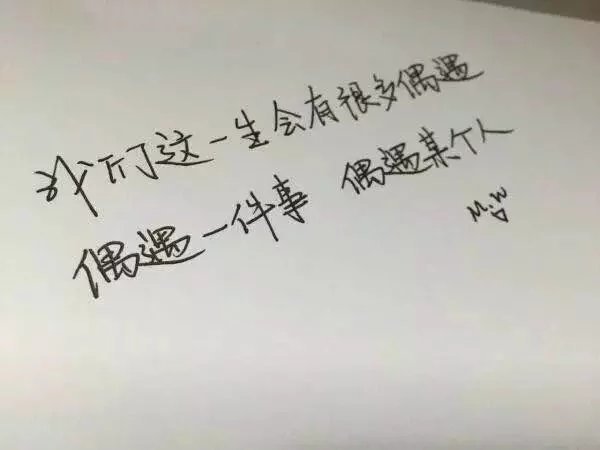 我们这一生会有很多偶遇
偶遇一件事 偶遇某个人
M.W